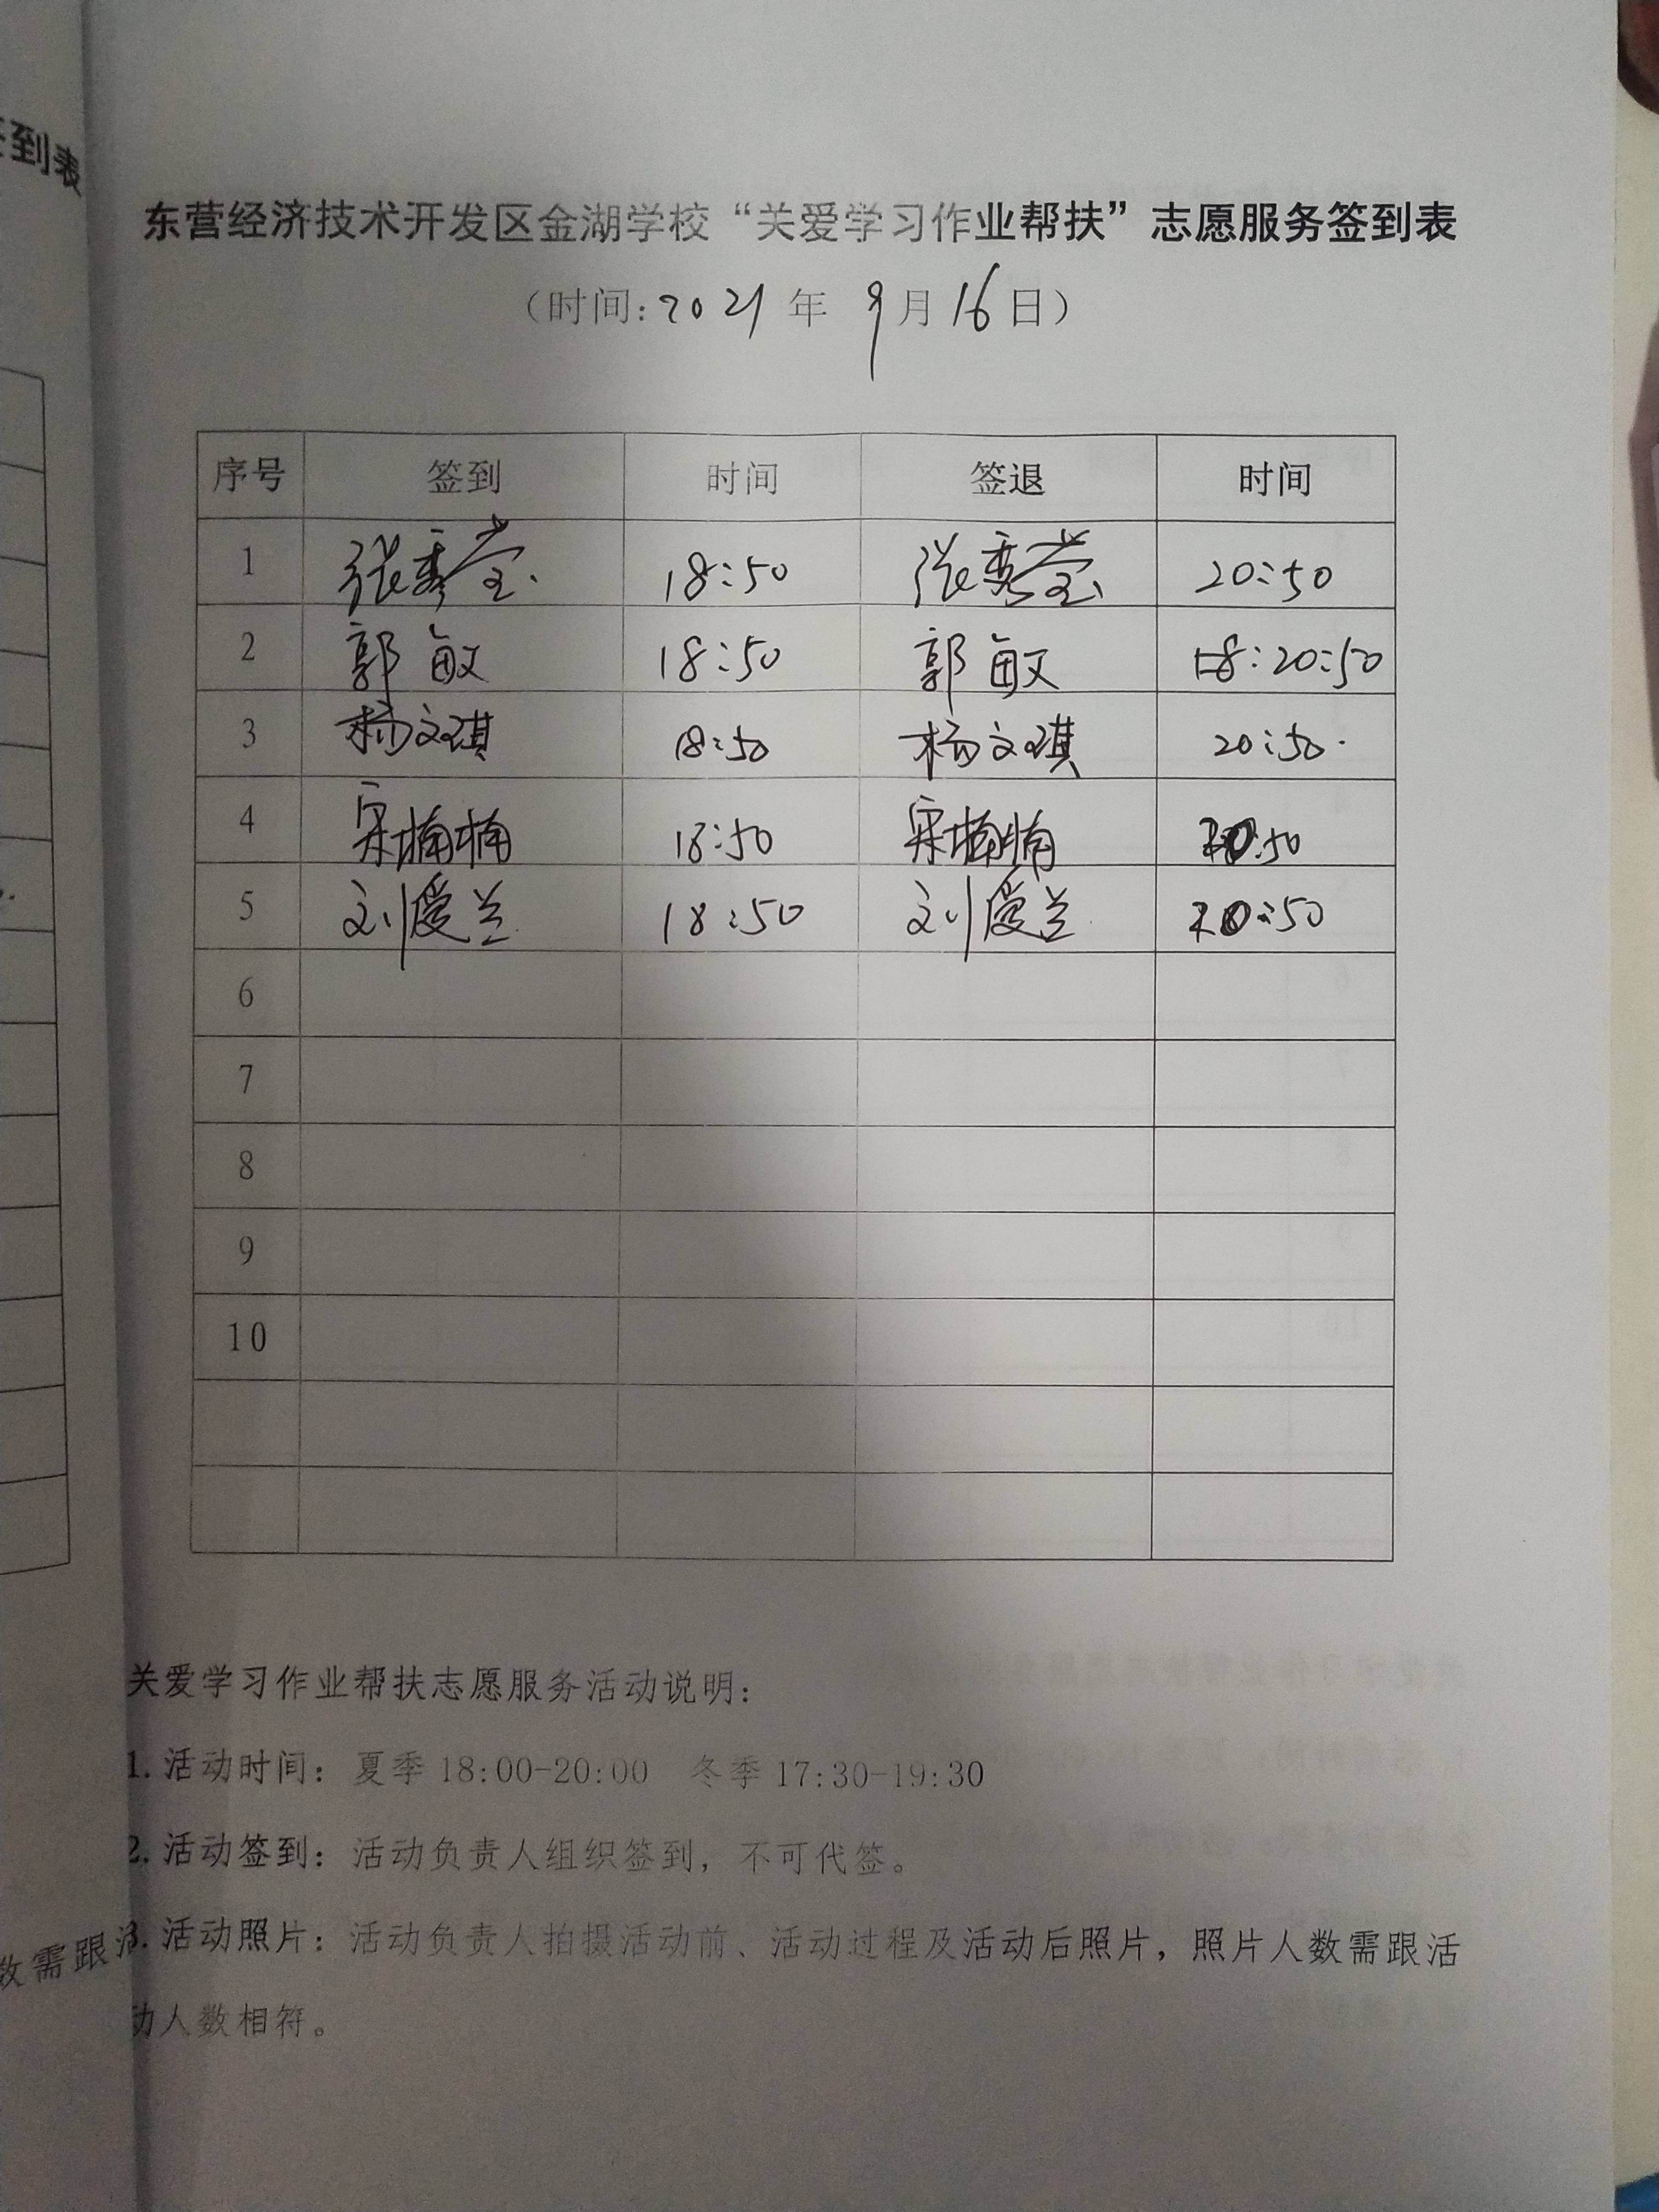 到表
东营经济技术开发区金湖学校“关爱学习作业帮扶”志愿服务签到表
（时间:2021年 9月16日）
序号 签到 时间 签退 时间
1 张秀莹 18:50 张秀莹 20:50
2 郭敏 18:50 郭敏 18:20:50
3 杨文琪 18:50 杨文琪 20:50
4 宋楠楠 18:50 宋楠楠 20:50
5 刘爱兰 18:50 刘爱兰 20:50
6
7
8
9
10
关爱学习作业帮扶志愿服务活动说明：
1. 活动时间：夏季 18:00-20:00 冬季 17:30-19:30
2. 活动签到：活动负责人组织签到，不可代签。
数需跟
3. 活动照片：活动负责人拍摄活动前、活动过程及活动后照片，照片人数需跟活
动人数相符。